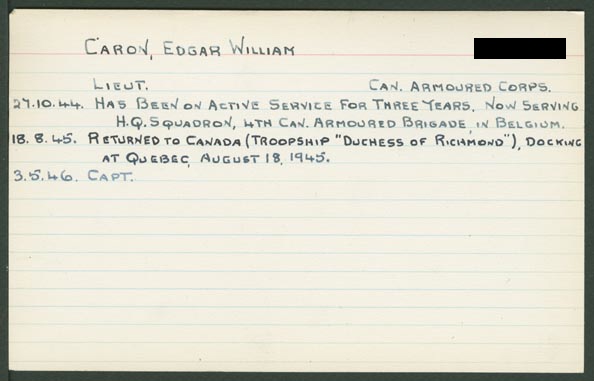 CARON, EDGAR WILLIAM
LIEUT. CAN. ARMOURED CORPS.
27.10.44. HAS BEEN ON ACTIVE SERVICE FOR THREE YEARS. NOW SERVING
H.Q. SQUADRON, 4TH CAN. ARMOURED BRIGADE, IN BELGIUM.
18.8.45. RETURNED TO CANADA (TROOPSHIP "DUCHESS OF RICHMOND"), DOCKING
AT QUEBEC, AUGUST 18, 1945.
3.5.46. CAPT.